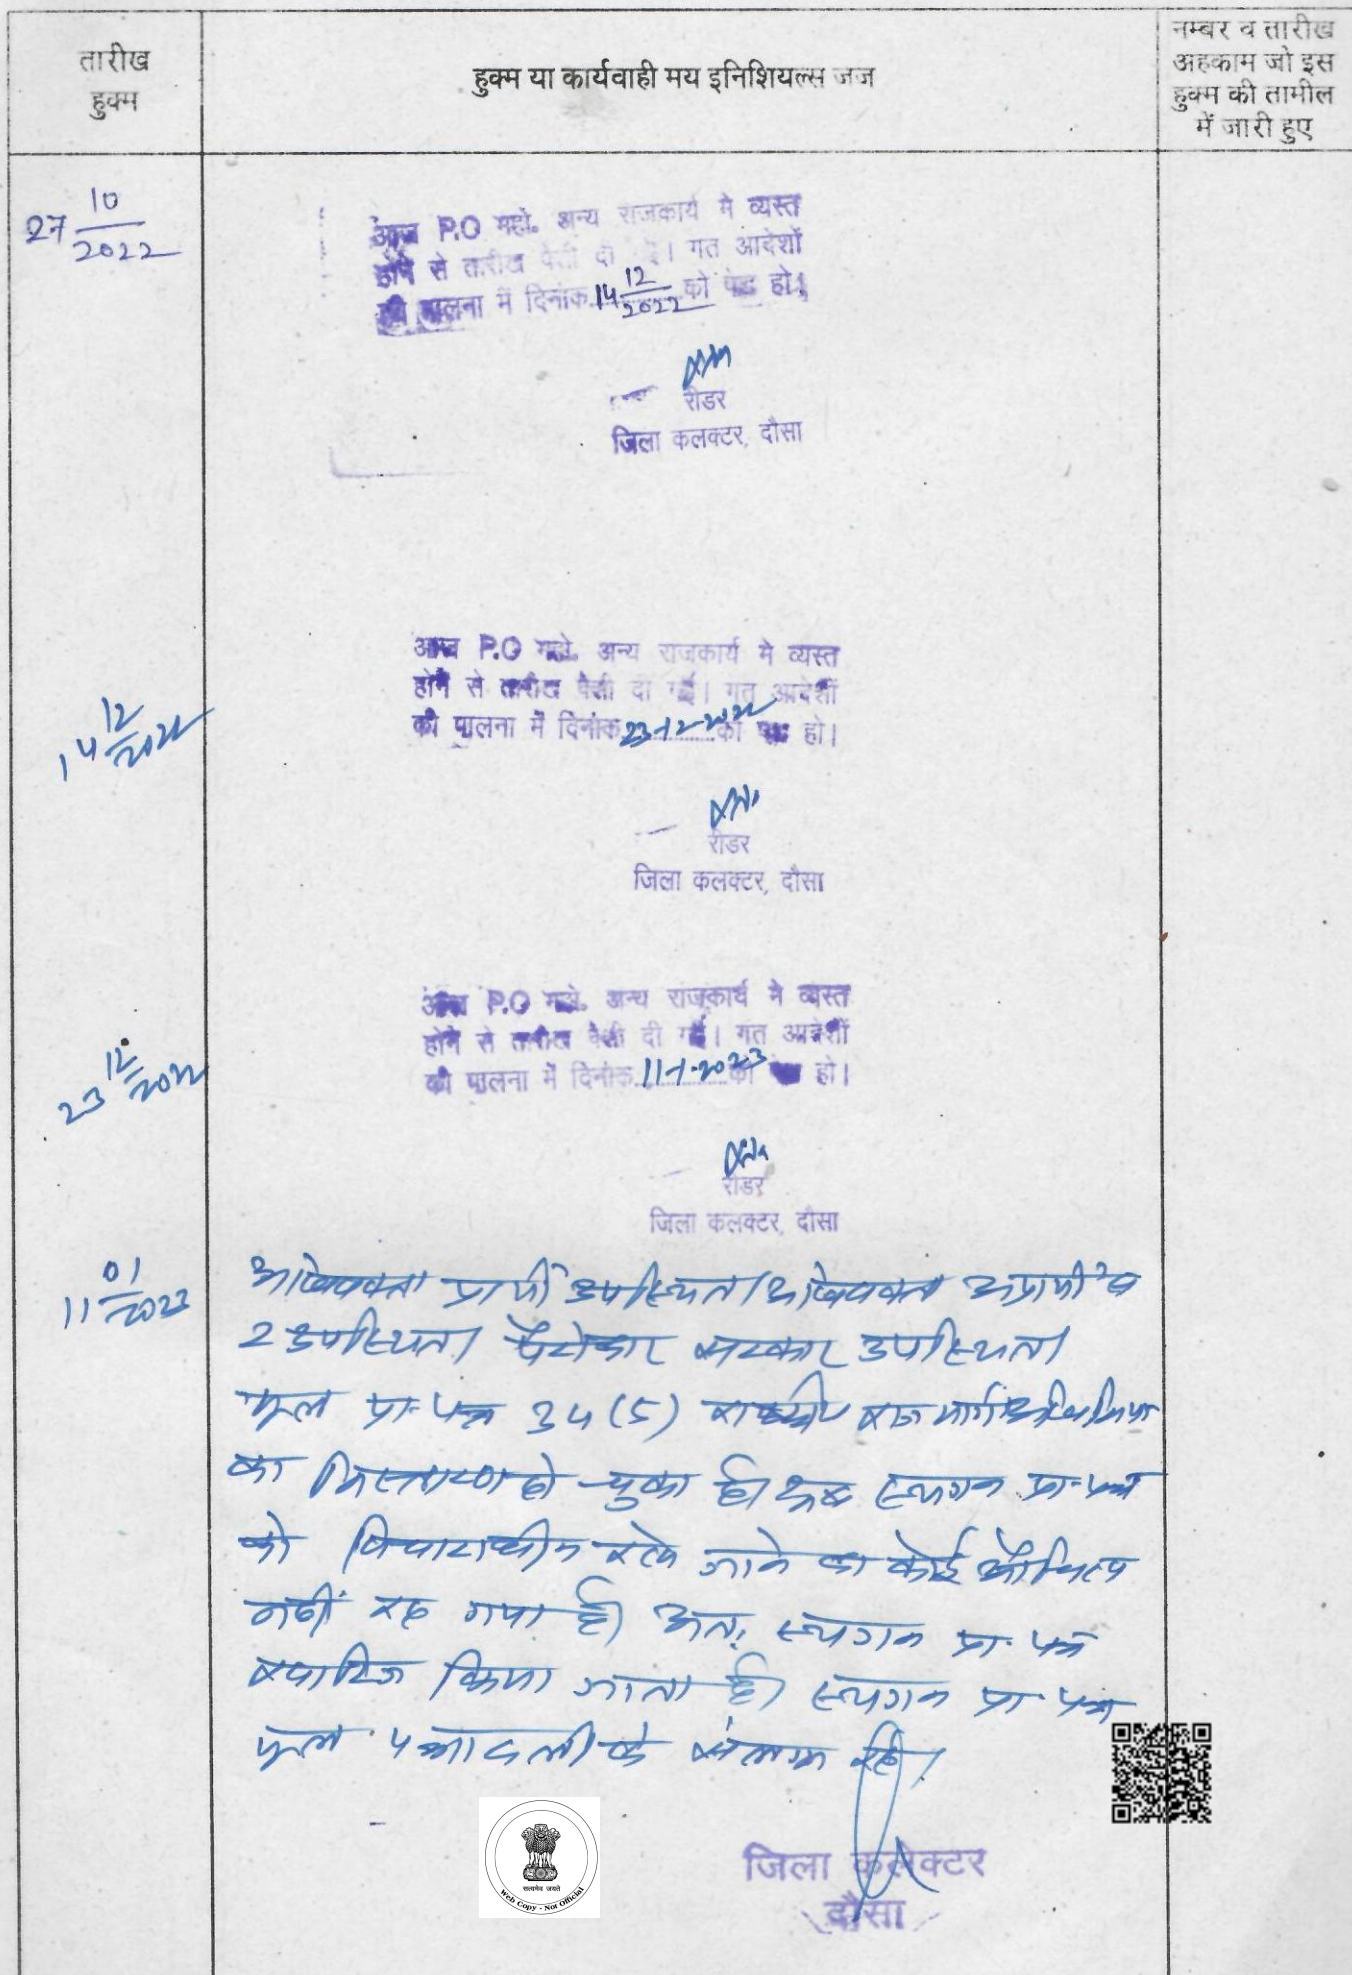 तारीख
हुक्म
हुक्म या कार्यवाही मय इनिशियल्स जज
नम्बर व तारीख
अहकाम जो इस
हुक्म की तामील
में जारी हुए
27 10/2022
आज P.O महो. अन्य राजकार्य मे व्यस्त
होने से तारीख पेशी दी गई। गत आदेशों
की पालना में दिनांक 14 12/2022 को पेश हो।
रीडर
जिला कलक्टर, दौसा
14 12/2022
आज P.O महो. अन्य राजकार्य मे व्यस्त
होने से तारीख पेशी दी गई। गत आदेशों
की पालना में दिनांक 23-12-2022 को पेश हो।
रीडर
जिला कलक्टर, दौसा
23 12/2022
आज P.O महो. अन्य राजकार्य मे व्यस्त
होने से तारीख पेशी दी गई। गत आदेशों
की पालना में दिनांक 11-1-2023 को पेश हो।
रीडर
जिला कलक्टर, दौसा
11 01/2023
अधिवक्ता प्रार्थी उपस्थित। अधिवक्ता अप्रार्थी व
2 उपस्थित। पैरोकार सरकार उपस्थित।
मूल प्रा. पत्र 34 (5) राष्ट्रीय राजमार्ग अधिनियम
का निस्तारण हो चुका है। अब स्थगन प्रा. पत्र
को विचाराधीन रखे जाने का कोई औचित्य
नहीं रह गया है। अतः स्थगन प्रा. पत्र
खारिज किया जाता है। स्थगन प्रा. पत्र
मूल पत्रावली के संलग्न रहे।
जिला कलक्टर
दौसा
सत्यमेव जयते
Web Copy - Not Official